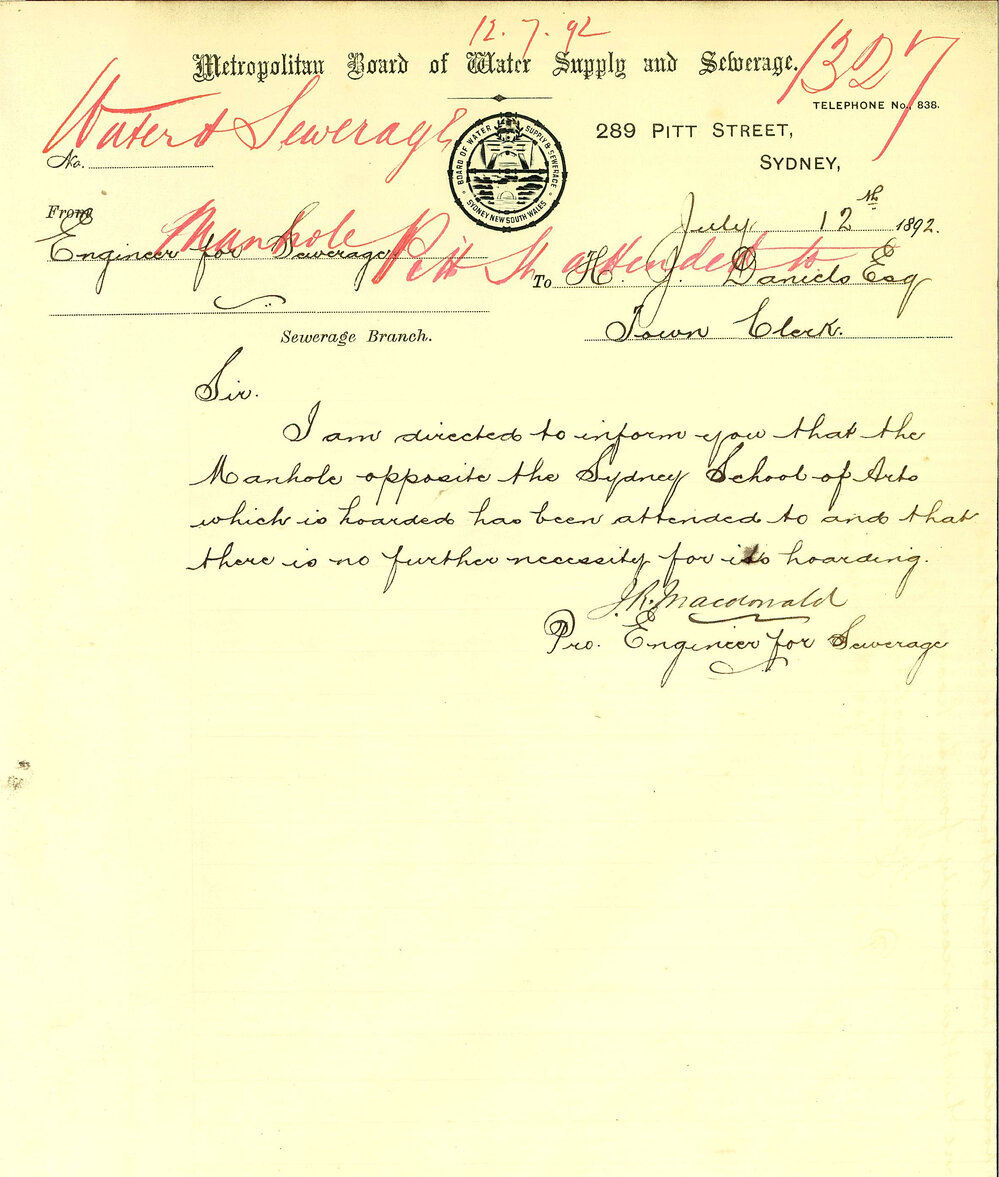 12.7.92
Metropolitan Board of Water Supply and Sewerage.
1327
TELEPHONE No. 838.
Water & Sewerage
289 PITT STREET,
No.
BOARD OF WATER SUPPLY & SEWERAGE
SYDNEY NEW SOUTH WALES
SYDNEY,
From
July 12th 1892.
Manhole Pitt St attended to
Engineer for Sewerage
To H. J. Daniels Esq
Town Clerk.
Sewerage Branch.
Sir.
I am directed to inform you that the
Manhole opposite the Sydney School of Arts
which is hoarded has been attended to and that
there is no further necessity for its hoarding.
J. R. Macdonald
Pro. Engineer for Sewerage